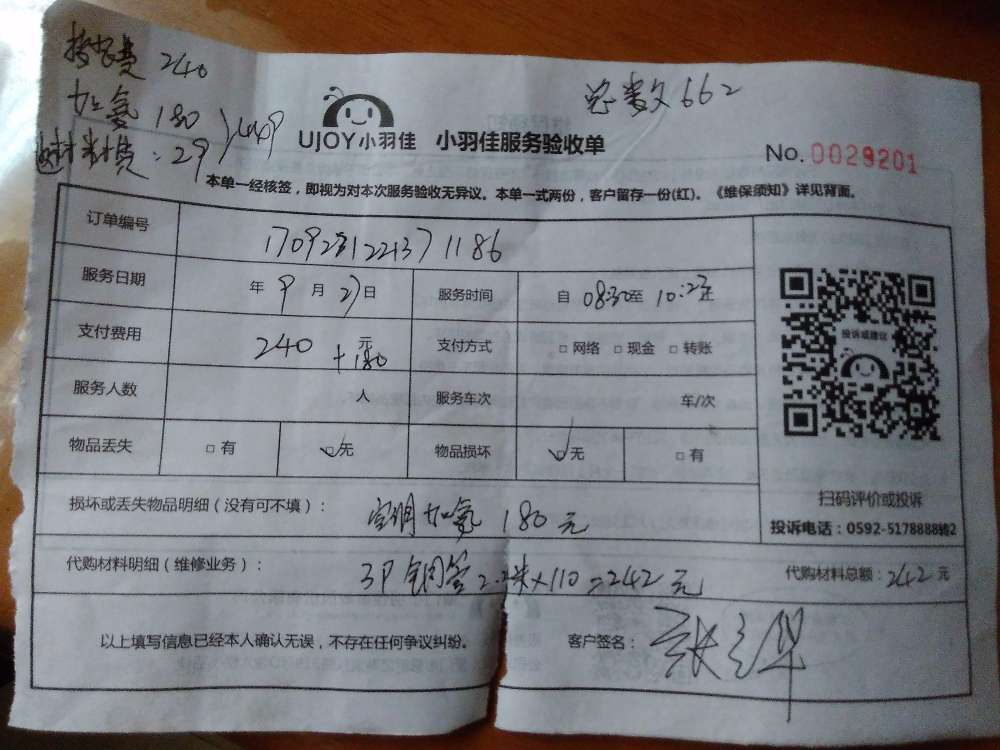 费 240
总数 662
180 449
UJOY小羽佳 小羽佳服务验收单
费:29
No.0029201
本单一经核签,即视为对本次服务验收无异议。本单一式两份,客户留存一份(红)。《维保须知》详见背面。
订单编号
服务日期 年 9 月 27 日 服务时间 自 08:30 至
支付费用 240 元 +180 支付方式 □ 网络 □ 现金 □ 转账
投诉或建议
服务人数 人 服务车次 车/次
物品丢失 □ 有 □ 无 物品损坏 □ 无 □ 有
扫码评价或投诉
损坏或丢失物品明细(没有可不填): 空调加氟 180 元
投诉电话:0592-5178888转2
代购材料明细(维修业务): 3P 铜管 2.2米×110=242 元 代购材料总额:242 元
以上填写信息已经本人确认无误,不存在任何争议纠纷。 客户签名: